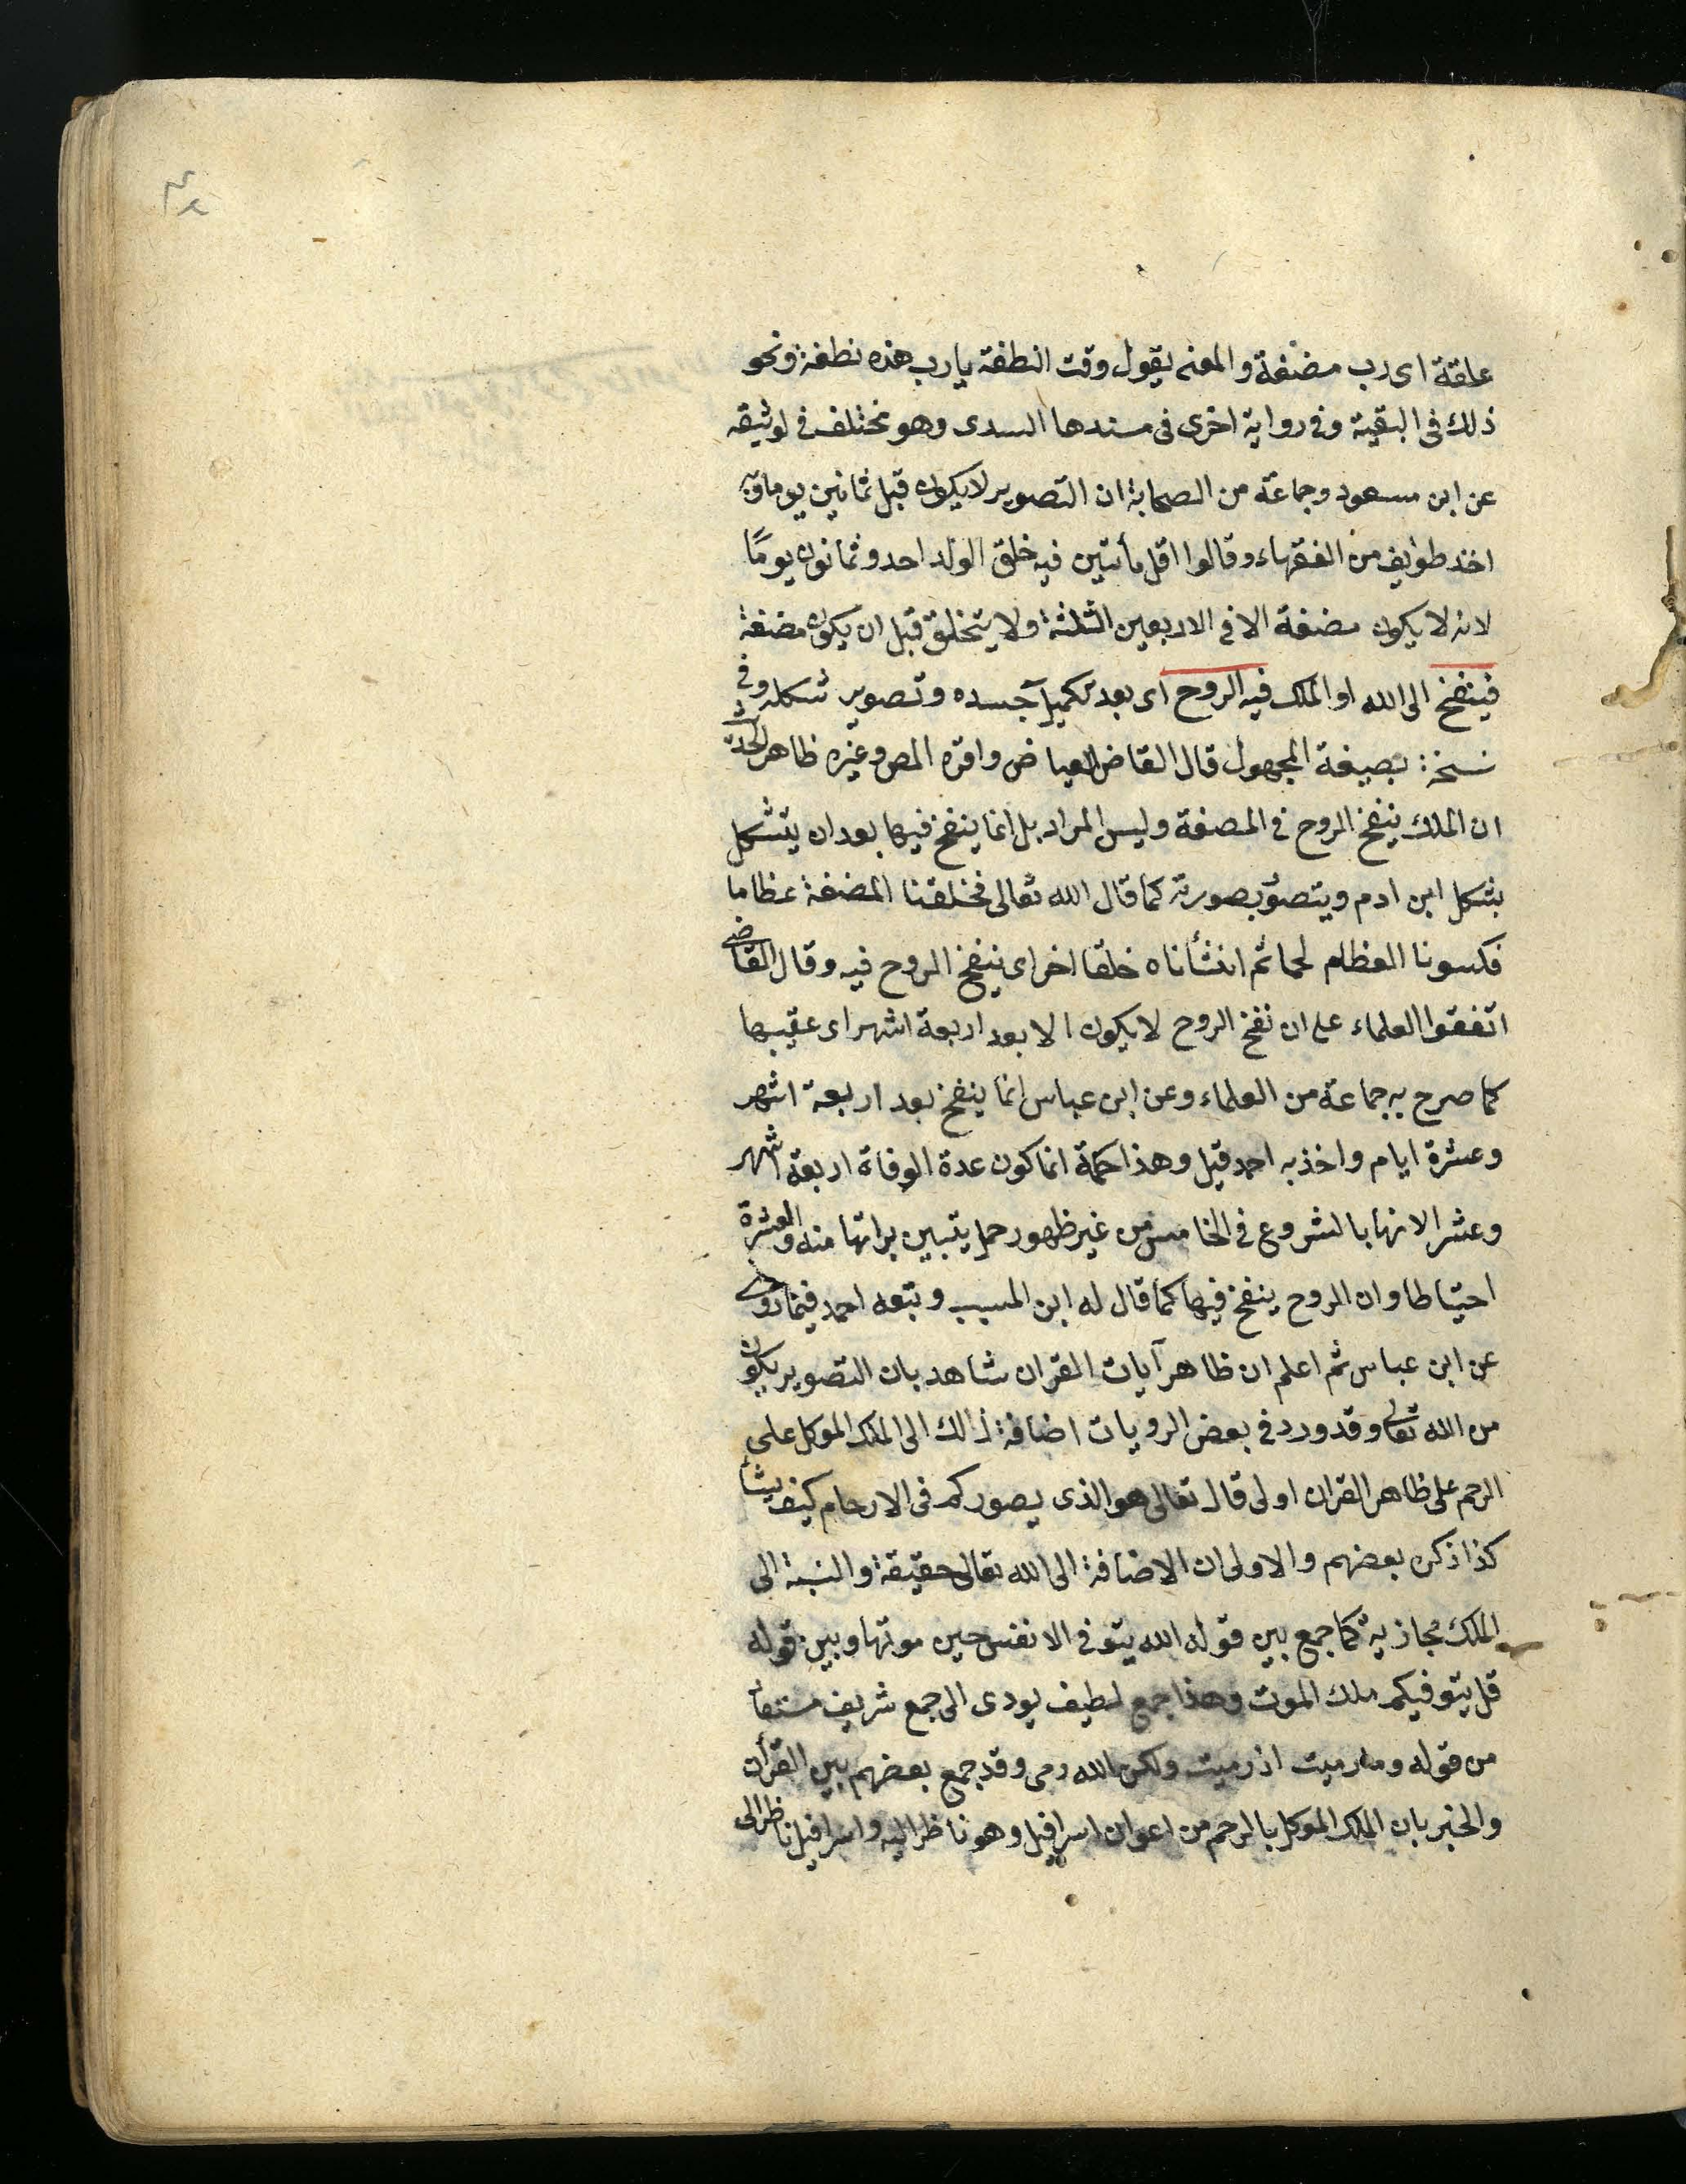 علقة اى رب مضغة والمعنى يقول وقت النطفة يا رب هذه نطفة ونحو
ذلك فى البقية وفى رواية اخرى فى مسندها السدى وهو مختلف فى لوثيقه
عن ابن مسعود وجماعة من الصحابة ان التصوير لا يكون قبل ثمانين يوما وبه
اخذ طوايف من الفقهاء وقالوا اقل ما تتبين فيه خلق الولد احد وثمانون يومًا
لانه لا يكون مضغة الا فى الاربعين الثلثة ولا يتخلق قبل ان يكون مضغة
فينفخ الى الله او الملك فيه الروح اى بعد تكميل جسده وتصوير شكله وفى
نسخة: بصيغة المجهول قال القاضى العياض واقره المص وغيره ظاهر الحديث
ان الملك ينفخ الروح فى المضغة وليس المراد بل انما ينفخ فيها بعد ان يتشكل
بشكل ابن ادم ويتصوّر بصورته كما قال الله تعالى فخلقنا المضغة عظاما
فكسونا العظام لحما ثم انشأناه خلقا اخر اى ينفخ الروح فيه وقال القاضى
اتفقوا العلماء على ان نفخ الروح لا يكون الا بعد اربعة اشهر اى عقيبها
كما صرح به جماعة من العلماء وعن ابن عباس انما ينفخ بعد اربعة اشهر
وعشرة ايام واخذ به احمد قيل وهذا حكمة انما كون عدة الوفاة اربعة اشهر
وعشر الانها بالشروع فى الخامس من غير ظهور حمل يتبين براتها منه والعشرة
احتياطا وان الروح ينفخ فيها كما قال له ابن المسيب وتبعه احمد فيما روى
عن ابن عباس ثم اعلم ان ظاهر آيات القران شاهد بان التصوير يكون
من الله تعالى وقد ورد فى بعض الرويات اضافة ذالك الى الملك الموكل على
الرحم على ظاهر القران اولى قال تعالى هو الذى يصوركم فى الارحام كيف يشأ
كذا ذكره بعضهم والاولى ان الاضافة الى الله تعالى حقيقة والنسبة الى
الملك مجازية كما جمع بين قوله الله يتوفى الانفس حين موتها وبين قوله
قل يتوفيكم ملك الموت وهذا جمع لطيف يودى الى جمع شريف مستفاد
من قوله وما رميت اذ رميت ولكن الله رمى وقد جمع بعضهم بين القرأن
والخبر بان الملك الموكل بالرحم من اعوان اسرافيل وهو ناظر اليه واسرافيل ناظر الى